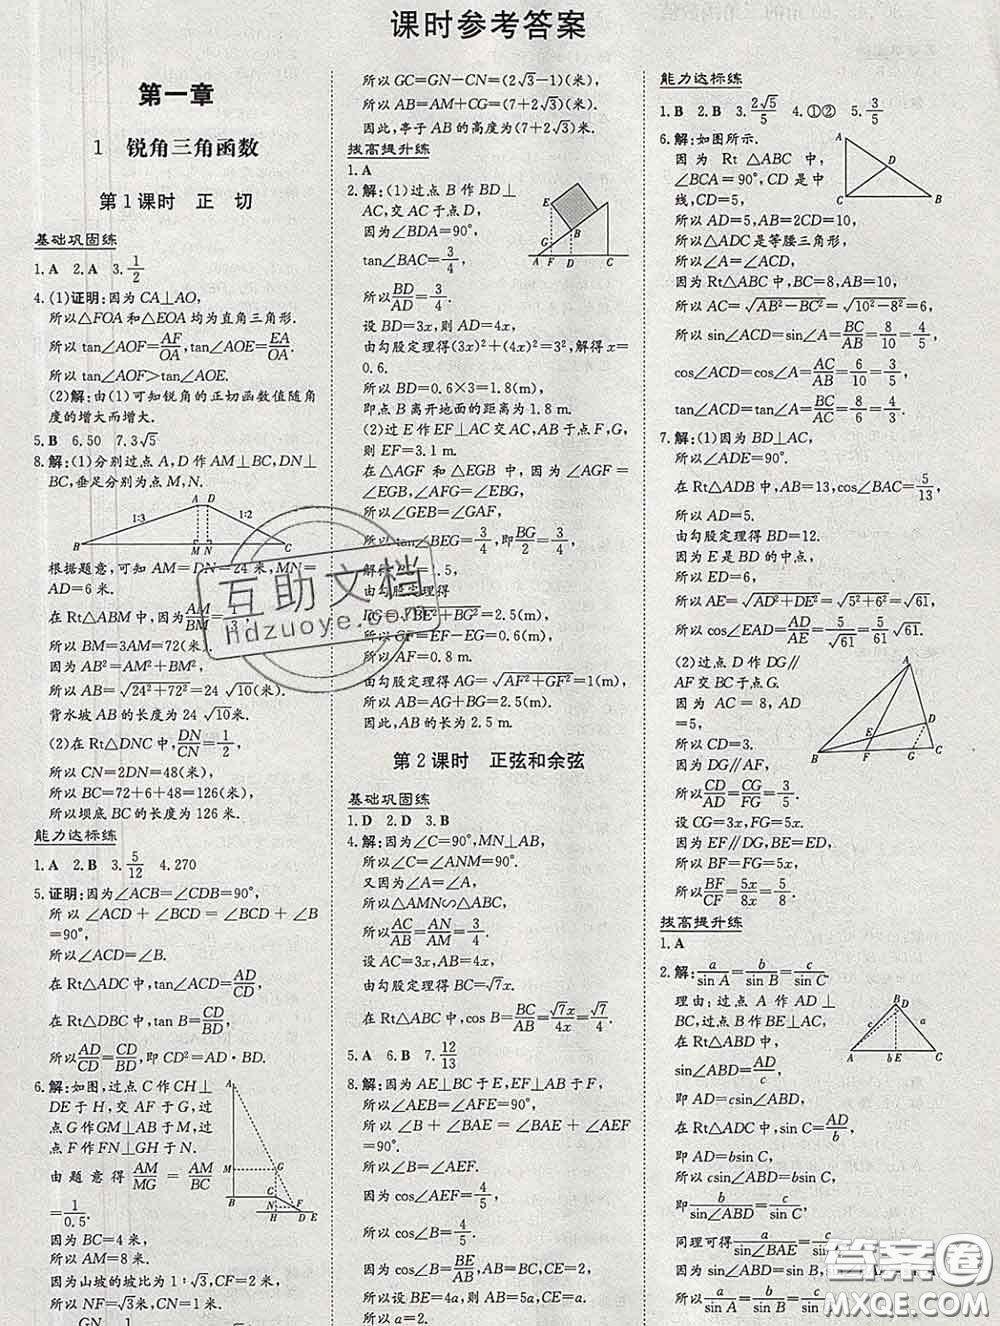 课时参考答案
第一章
1 锐角三角函数
第1课时 正 切
基础巩固练
1.A 2.A 3.1/2
4.(1)证明:因为CA⊥AO,
所以△FOA和△EOA均为直角三角形.
所以tan∠AOF=AF/OA,tan∠AOE=EA/OA.
所以tan∠AOF>tan∠AOE.
(2)解:由(1)可知锐角的正切函数值随角
度的增大而增大.
5.B 6.50 7.3√5
8.解:(1)分别过点A,D作AM⊥BC,DN⊥
BC,垂足分别为点M,N.
A D
1:3 1:2
B M N C
根据题意,可知AM=DN=24米,MN=
AD=6米.
在Rt△ABM中,因为AM/BM=1/3,
所以BM=3AM=72(米).
因为AB²=AM²+BM²,
所以AB=√(24²+72²)=24√10(米).
背水坡AB的长度为24√10米.
(2)在Rt△DNC中,DN/CN=1/2,
所以CN=2DN=48(米),
所以BC=72+6+48=126(米),
所以坝底BC的长度为126米.
能力达标练
1.A 2.B 3.5/12 4.270
5.证明:因为∠ACB=∠CDB=90°,
所以∠ACD+∠BCD=∠BCD+∠B
=90°,
所以∠ACD=∠B.
在Rt△ADC中,tan∠ACD=AD/CD,
在Rt△DBC中,tan B=CD/BD,
所以AD/CD=CD/BD,即CD²=AD·BD.
6.解:如图,过点C作CH⊥
DE于H,交AF于G,过
点G作GM⊥AB于M,过
点F作FN⊥GH于N.
由题意得AM/MG=AM/BC
=1/0.5.
因为BC=4米,
所以AM=8米.
因为山坡的坡比为1∶√3,CF=2米,
所以NF=√3米,CN=1米.
A
M G
B C
N F
H D E
所以GC=GN−CN=(2√3−1)(米),
所以AB=AM+CG=(7+2√3)(米).
因此,亭子AB的高度为(7+2√3)米.
拔高提升练
1.A
2.解:(1)过点B作BD⊥
AC,交AC于点D,
因为∠BDA=90°,
tan∠BAC=3/4,
所以BD/AD=3/4.
设BD=3x,则AD=4x,
由勾股定理得(3x)²+(4x)²=3²,解得x=
0.6.
所以BD=0.6×3=1.8(m),
即点B离开地面的距离为1.8 m.
(2)过E作EF⊥AC交AB,AC于点F,G,
则EF=3.1 m.
在△AGF和△EGB中,因为∠AGF=
∠EGB,∠AFG=∠EBG,
所以∠BEG=∠GAF,
所以tan∠BEG=3/4,即BG/2=3/4,
由勾股定理得
EG=√(BE²+BG²)=2.5(m),
所以GF=EF−EG=0.6(m),
所以AF=0.8 m.
由勾股定理得AG=√(AF²+GF²)=1(m),
所以AB=AG+BG=2.5(m).
因此,AB的长为2.5 m.
E
G B
A F D C
第2课时 正弦和余弦
基础巩固练
1.D 2.D 3.B
4.解:因为∠C=90°,MN⊥AB,
所以∠C=∠ANM=90°.
又因为∠A=∠A,
所以△AMN∽△ABC,
所以AC/AB=AN/AM=3/4.
设AC=3x,AB=4x,
由勾股定理得BC=√7x.
在Rt△ABC中,cos B=BC/AB=√7x/4x=√7/4.
5.A 6.B 7.12/13
8.解:因为AE⊥BC于E,EF⊥AB于F,
所以∠AEB=∠AFE=90°,
所以∠B+∠BAE=∠BAE+∠AEF
=90°,
所以∠B=∠AEF.
因为cos∠AEF=4/5,
所以cos∠B=4/5.
因为cos∠B=BE/AB,AB=BC,CE=2,
所以设BE=4a,则AB=5a,CE=a.
所以a=2.
能力达标练
1.B 2.B 3.2√5/5 4.①② 5.3/5
6.解:如图所示.
因为Rt△ABC中,
∠BCA=90°,CD是中
线,CD=5,
所以AD=5,AB=2CD=10,
所以△ADC是等腰三角形,
所以∠A=∠ACD,
因为在Rt△ABC中,BC=8,AB=10,
所以AC=√(AB²−BC²)=√(10²−8²)=6,
所以sin∠ACD=sin∠A=BC/AB=8/10=4/5,
cos∠ACD=cos∠A=AC/AB=6/10=3/5,
tan∠ACD=tan∠A=BC/AC=8/6=4/3.
A
D
C B
7.解:(1)因为BD⊥AC,
所以∠ADE=90°.
在Rt△ADB中,AB=13,cos∠BAC=5/13,
所以AD=5.
由勾股定理得BD=12.
因为E是BD的中点,
所以ED=6,
所以AE=√(AD²+DE²)=√(5²+6²)=√61,
所以cos∠EAD=AD/AE=5/√61=5/61√61.
(2)过点D作DG∥
AF交BC于点G.
因为AC=8,AD
=5,
所以CD=3.
因为DG∥AF,
所以CD/AD=CG/FG=3/5.
设CG=3x,FG=5x.
因为EF∥DG,BE=ED,
所以BF=FG=5x.
所以BF/CF=5x/8x=5/8.
A
D
E
B F G C
拔高提升练
1.A
2.解:a/sin A=b/sin B=c/sin C.
理由:过点A作AD⊥
BC,过点B作BE⊥AC,
在Rt△ABD中,
sin∠ABD=AD/c,
即AD=csin∠ABD,
在Rt△ADC中,sin C=AD/b,
即AD=bsin C,
所以csin∠ABD=bsin C,
即b/sin∠ABD=c/sin C,
同理可得a/sin∠BAE=c/sin C,
所以a/sin A=b/sin B=c/sin C.
B D
c a
A b E C
互助文档
Hdzuoye.com
答案圈
MXQE.COM